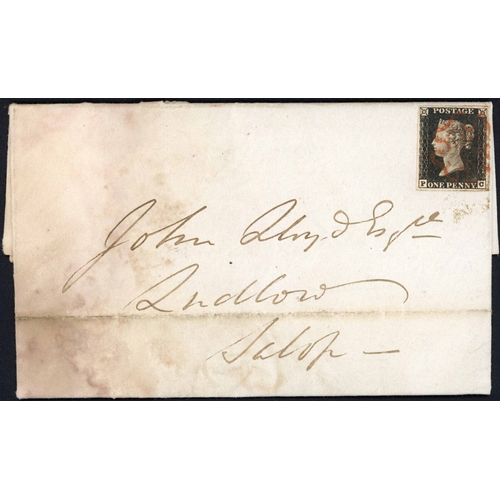 POSTAGE
F G
ONE PENNY
John Lloyd Esqre
Ludlow
Salop –